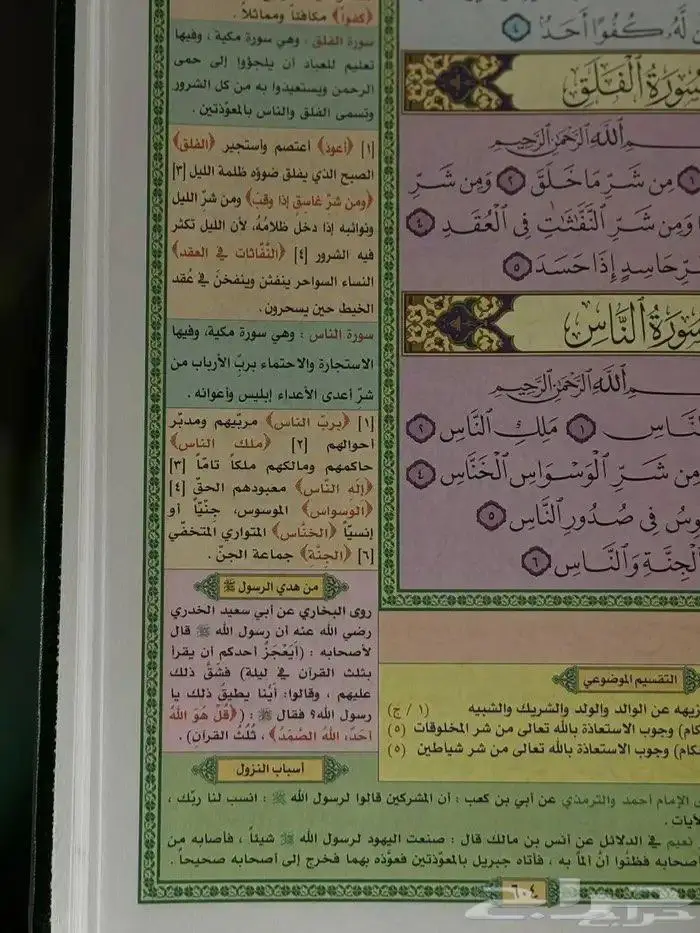 ﴿كفواً﴾ مكافئاً ومماثلاً .
سورة الفلق . وهي سورة مكية ، وفيها
تعليم للعباد أن يلجؤوا إلى حمى
الرحمن ويستعيذوا به من كل الشرور
وتسمى الفلق والناس بالمعوّذتين .
[١] ﴿أعوذ﴾ أعتصم وأستجير ﴿الفلق﴾
الصبح الذي يفلق ضوؤه ظلمة الليل [٣]
﴿ومن شرِّ غاسقٍ إذا وقبَ﴾ ومن شرِّ الليل
ونوائبه إذا دخل ظلامُهُ، لأن الليل تكثر
فيه الشرور [٤] ﴿النَّفَّاثات في العقد﴾
النساء السواحر ينفثن وينفخنَ في عُقد
الخيط حين يسحرون.
سورة الناس : وهي سورة مكية، وفيها
الاستجارة والاحتماء بربّ الأرباب من
شرِّ أعدى الأعداء إبليس وأعوانه .
[١] ﴿بربِّ الناس﴾ مربّيهم ومدبّر
أحوالهم [٢] ﴿ملك الناس﴾
حاكمهم ومالكهم ملكاً تامّاً [٣]
﴿إله النَّاس﴾ معبودهم الحقّ [٤]
﴿الوسواس﴾ الموسوس، جنّيّاً أو
إنسيّاً ﴿الخنَّاس﴾ المتواري المتخفّي
[٦] ﴿الجِنَّة﴾ جماعة الجنّ .
من هدي الرسول ﷺ
روى البخاري عن أبي سعيد الخدري
رضي الله عنه أن رسول الله ﷺ قال
لأصحابه : (أيَعْجَزُ أحدكم أن يقرأ
بثلث القرآن في ليلة) فشَقَّ ذلك
عليهم ، وقالوا: أيُّنا يطيقُ ذلك يا
رسول الله؟ فقال ﷺ : (﴿قُلْ هُوَ اللهُ
أحَدٌ، اللهُ الصَّمَدُ﴾ ، ثُلُثُ القرآنِ) .
لَّهُ كُفُوًا أَحَدٌ ٤
سُورَةُ الْفَلَقِ
اللَّهِ الرَّحْمَٰنِ الرَّحِيمِ
١ مِن شَرِّ مَا خَلَقَ ٢ وَمِن شَرِّ
وَمِن شَرِّ النَّفَّٰثَٰتِ فِي الْعُقَدِ ٤
حَاسِدٍ إِذَا حَسَدَ ٥
سُورَةُ النَّاسِ
اللَّهِ الرَّحْمَٰنِ الرَّحِيمِ
النَّاسِ ١ مَلِكِ النَّاسِ ٢
مِن شَرِّ الْوَسْوَاسِ الْخَنَّاسِ ٤
فِي صُدُورِ النَّاسِ ٥
الْجِنَّةِ وَالنَّاسِ ٦
التقسيم الموضوعي
عن الوالد والولد والشريك والشبيه (١ / ج)
وجوب الاستعاذة بالله تعالى من شر المخلوقات (٥)
وجوب الاستعاذة بالله تعالى من شر شياطين (٥)
أسباب النزول
الإمام أحمد والترمذي عن أبي بن كعب : أن المشركين قالوا لرسول الله ﷺ : انسب لنا ربّك ،
نعيم في الدلائل عن أنس بن مالك قال : صنعت اليهود لرسول الله ﷺ شيئاً ، فأصابه من
فظنّوا أنَّ ألماً به ، فأتاه جبريل بالمعوّذتين فعوّذه بهما فخرج إلى أصحابه صحيحاً .
٦٠٤
حراج